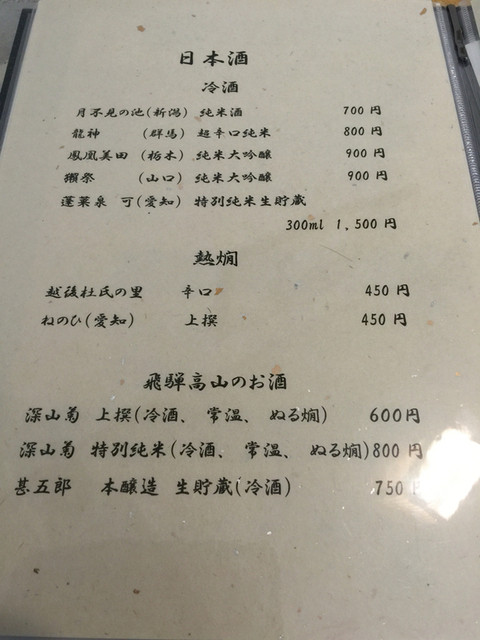 日本酒
冷酒
月不見の池(新潟) 純米酒 700円
龍神 (群馬) 超辛口純米 800円
鳳凰美田 (栃木) 純米大吟醸 900円
獺祭 (山口) 純米大吟醸 900円
蓬莱泉 可(愛知) 特別純米生貯蔵
300ml 1,500円
熱燗
越後杜氏の里 辛口 450円
ねのひ(愛知) 上撰 450円
飛騨高山のお酒
深山菊 上撰(冷酒、常温、ぬる燗) 600円
深山菊 特別純米(冷酒、常温、ぬる燗)800円
甚五郎 本醸造 生貯蔵(冷酒) 750